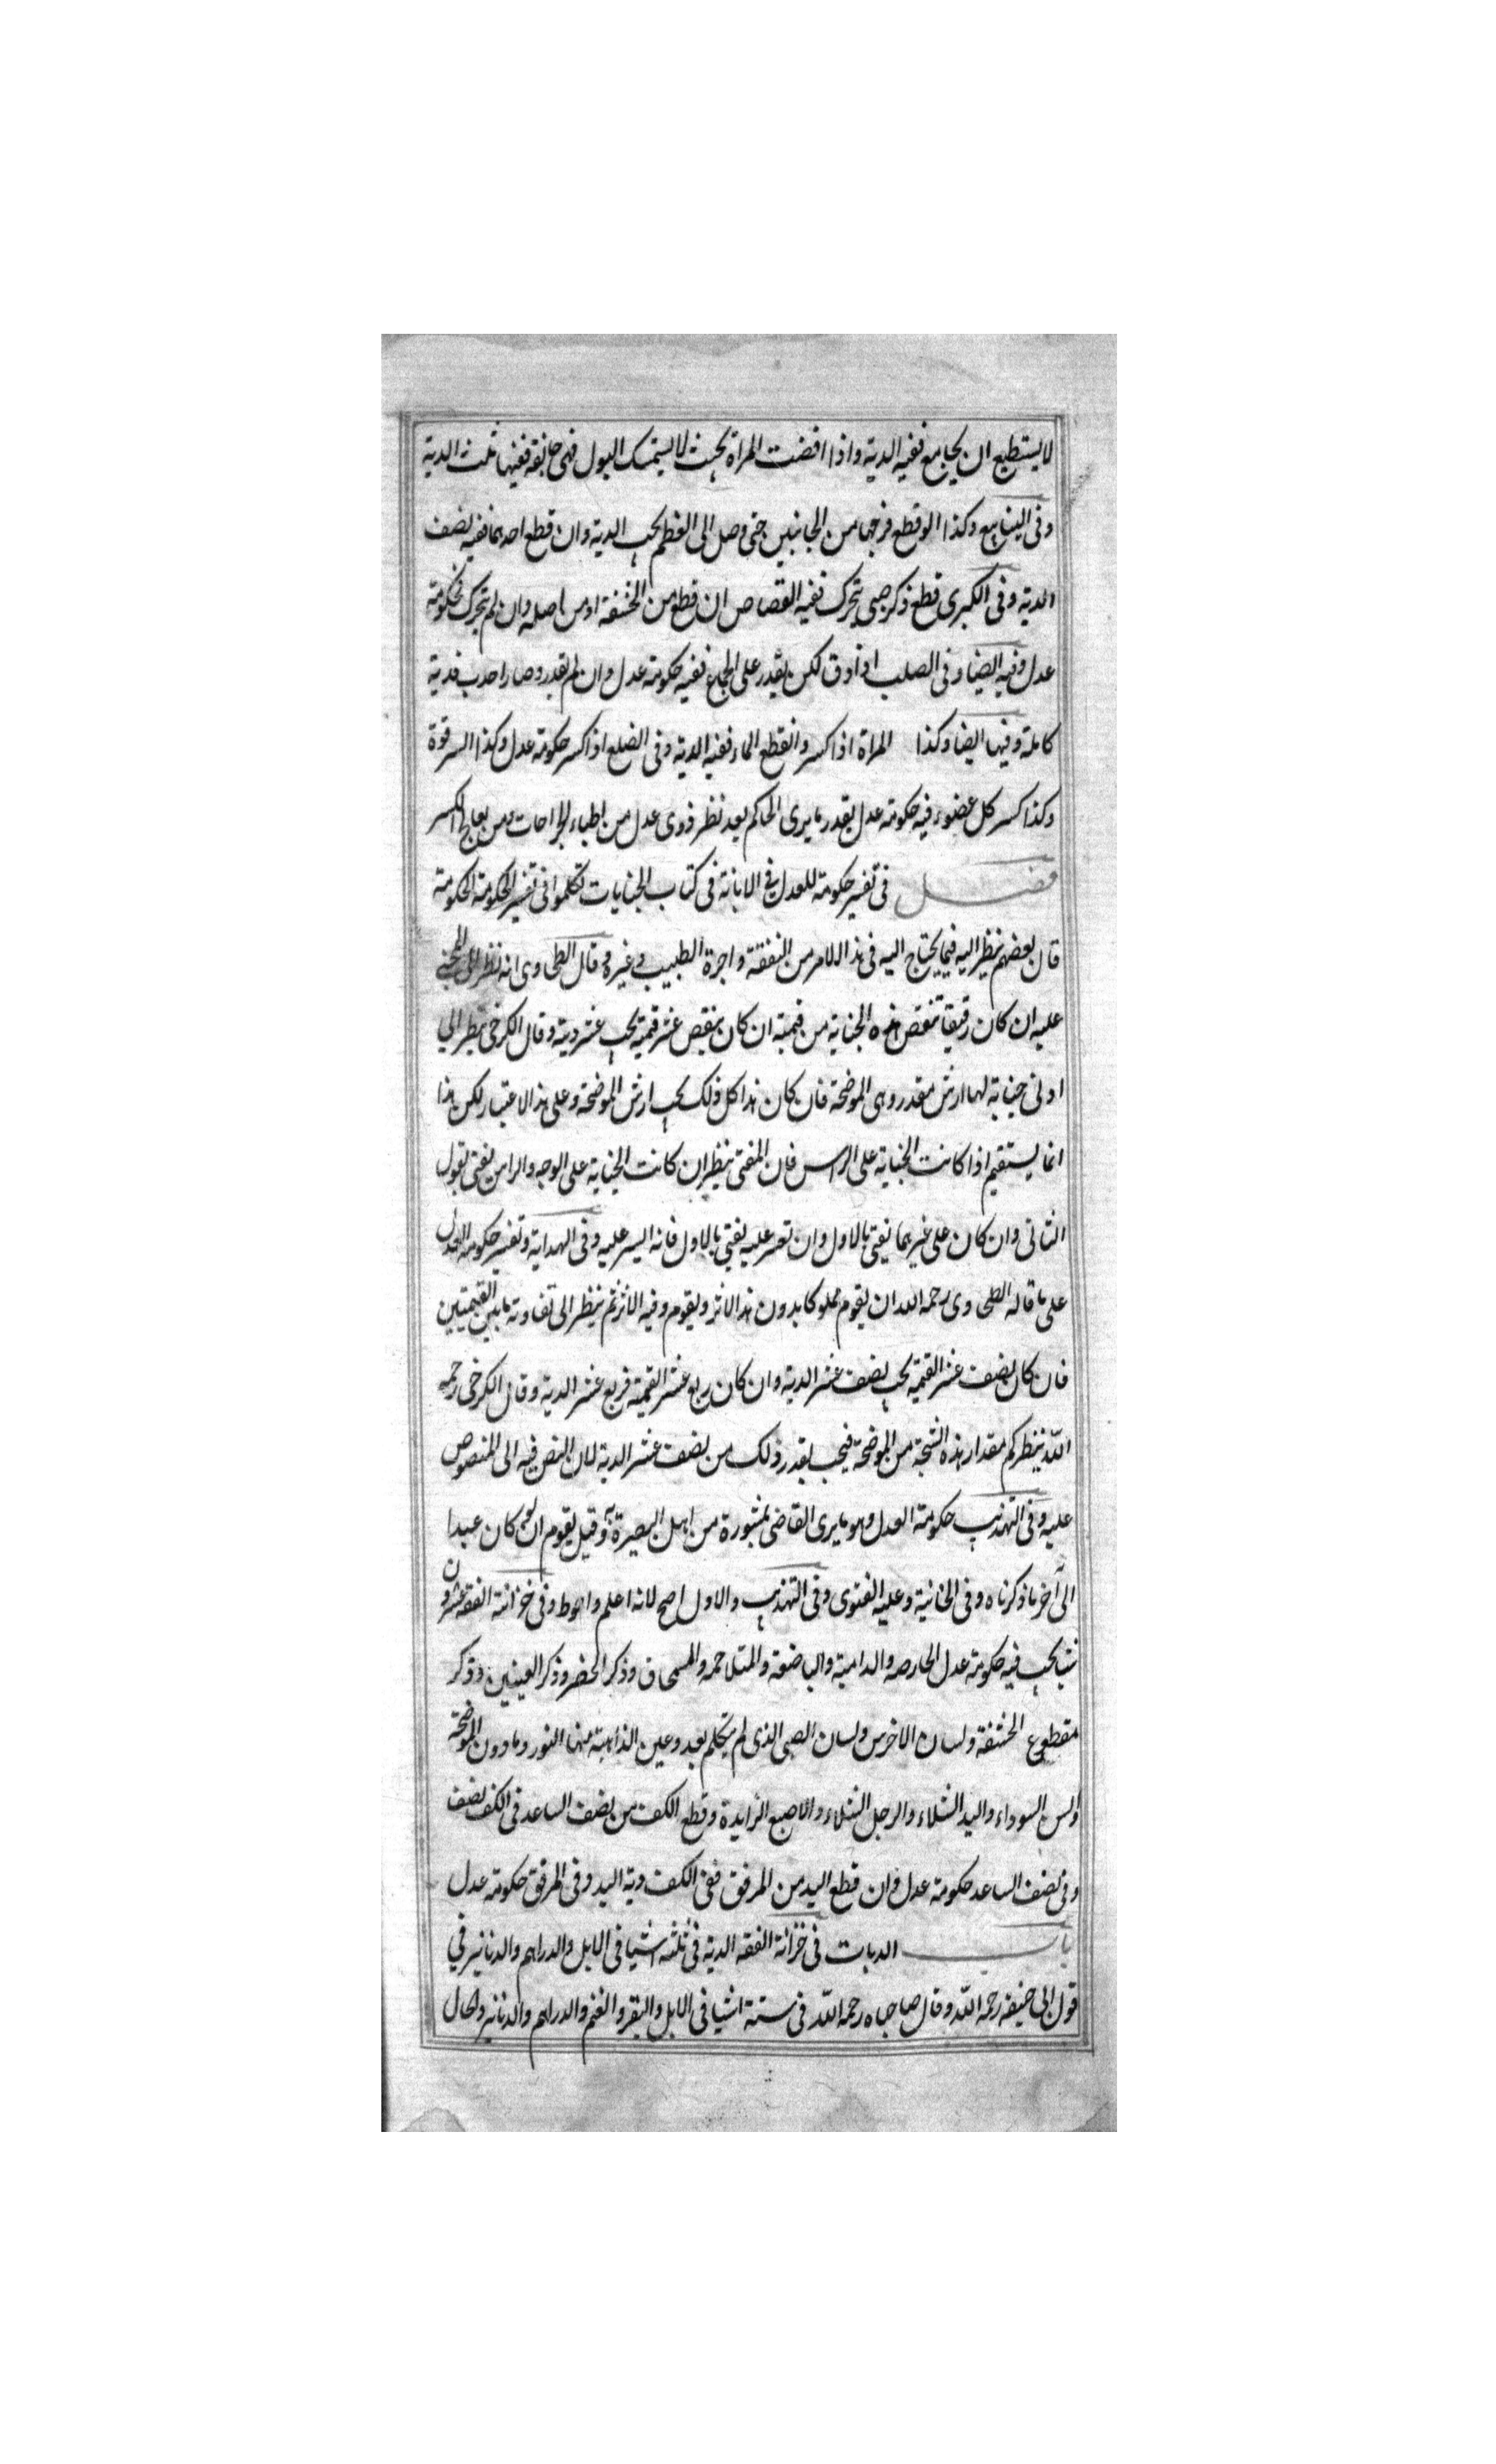 لا يستطيع ان يجامع ففيه الدية واذا افضت المراة بحيث لا يستمسك البول فهى جائفة ففيها ثلث الدية
وفى الينابيع وكذا لو قطع فرجها من الجانبين حتى وصل الى العظم يجب الدية وان قطع احدهما ففيه نصف
الدية وفى الكبرى قطع ذكر صبى يتحرك ففيه القصاص ان قطع من الحشفة او من اصله وان لم يتحرك فحكومة
عدل وفيه ايضا وفى الصلب اذا دق لكن يقدر على الجماع ففيه حكومة عدل وان لم يقدر وصار احدب فدية
كاملة وفيها ايضا وكذا المراة اذا كسر وانقطع الماء ففيه الدية وفى الضلع اذا كسر حكومة عدل وكذا الترقوة
وكذا كسر كل عضو فيه حكومة عدل بقدر ما يرى الحاكم بعد نظر ذوى عدل من اطباء الجراحات ومن يعالج الكسر
فصل فى تفسير حكومة العدل فى الابانة فى كتاب الجنايات تكلموا فى تفسير الحكومة الحكومة
قال بعضهم ينظر اليه فيما يحتاج اليه فى هذا الامر من النفقة واجرة الطبيب وغيره وقال الطحاوى انه ينظر الى المجنى
عليه ان كان رقيقا تنقص هذه الجناية من قيمته ان كان ينقص عشر قيمته يجب عشر دية وقال الكرخى ينظر الى
ادنى جناية لها ارش مقدر وهى الموضحة فان كان هذا كل ذلك يجب ارش الموضحة وعلى هذا الاعتبار لكن هذا
انما يستقيم اذا كانت الجناية على الراس فان المفتى ينظر ان كانت الجناية على الوجه والراس يفتى بقول
الثانى وان كان على غيرهما يفتى بالاول وان تعسر عليه يفتى بالاول فانه ايسر عليه وفى الهداية وتفسير حكومة العدل
على ما قاله الطحاوى رحمه الله ان يقوم مملوكا بدون هذا الاثر ويقوم وفيه الاثر ثم ينظر الى تفاوت ما بين القيمتين
فان كان نصف عشر القيمة يجب نصف عشر الدية وان كان ربع عشر القيمة فربع عشر الدية وقال الكرخى رحمه
الله ينظر كم مقدار هذه الشجة من الموضحة فيجب بقدر ذلك من نصف عشر الدية لان النص فيه الى المنصوص
عليه وفى التهذيب حكومة العدل وهو ما يرى القاضى بمشورة من اهل البصيرة به وقيل يقوم ان لو كان عبدا
الى آخر ما ذكرناه وفى الخانية وعليه الفتوى وفى التهذيب والاول اصح لانه اعلم واحوط وفى خزانة الفقه عشرون
شيئا يجب فيه حكومة عدل الحارصة والدامية والباضعة والمتلاحمة والسمحاق وذكر الخصى وذكر العينين وذكر
مقطوع الحشفة ولسان الاخرس ولسان الصبى الذى لم يتكلم بعد وعين الذاهبة منها النور وما دون الموضحة
والسن السوداء واليد الشلاء والرجل الشلاء والاصبع الزايدة وقطع الكف من نصف الساعد فى الكف نصف
وفى نصف الساعد حكومة عدل وان قطع اليد من المرفق ففى الكف دية اليد وفى المرفق حكومة عدل
باب الديات فى خزانة الفقه الدية فى ثلثة اشيا فى الابل والدراهم والدنانير فى
قول ابى حنيفة رحمه الله وقال صاحباه رحمه الله فى ستة اشيا فى الابل والبقر والغنم والدراهم والدنانير والحلل